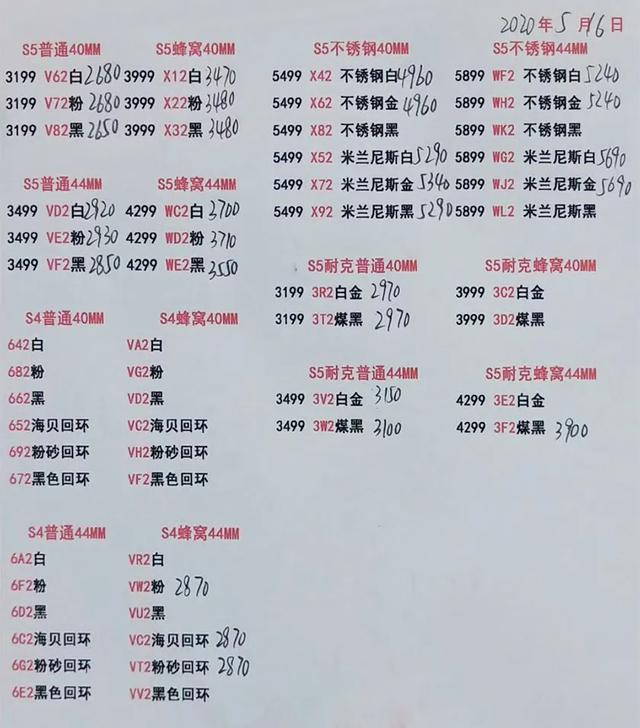 2020年5月16日
S5普通40MM S5蜂窝40MM
3199 V62白2680 3999 X12白3470
3199 V72粉2680 3999 X22粉3480
3199 V82黑2650 3999 X32黑3480
S5普通44MM S5蜂窝44MM
3499 VD2白2920 4299 WC2白3700
3499 VE2粉2930 4299 WD2粉3710
3499 VF2黑2850 4299 WE2黑3550
S4普通40MM S4蜂窝40MM
642白 VA2白
682粉 VG2粉
662黑 VD2黑
652海贝回环 VC2海贝回环
692粉砂回环 VH2粉砂回环
672黑色回环 VF2黑色回环
S4普通44MM S4蜂窝44MM
6A2白 VR2白
6F2粉 VW2粉 2870
6D2黑 VU2黑
6C2海贝回环 VC2海贝回环 2870
6G2粉砂回环 VT2粉砂回环 2870
6E2黑色回环 VV2黑色回环
S5不锈钢40MM S5不锈钢44MM
5499 X42 不锈钢白4960 5899 WF2 不锈钢白5240
5499 X62 不锈钢金4960 5899 WH2 不锈钢金5240
5499 X82 不锈钢黑 5899 WK2 不锈钢黑
5499 X52 米兰尼斯白5290 5899 WG2 米兰尼斯白5690
5499 X72 米兰尼斯金5340 5899 WJ2 米兰尼斯金5690
5499 X92 米兰尼斯黑5290 5899 WL2 米兰尼斯黑
S5耐克普通40MM S5耐克蜂窝40MM
3199 3R2白金 2970 3999 3C2白金
3199 3T2煤黑 2970 3999 3D2煤黑
S5耐克普通44MM S5耐克蜂窝44MM
3499 3V2白金 3150 4299 3E2白金
3499 3W2煤黑 3100 4299 3F2煤黑 3900